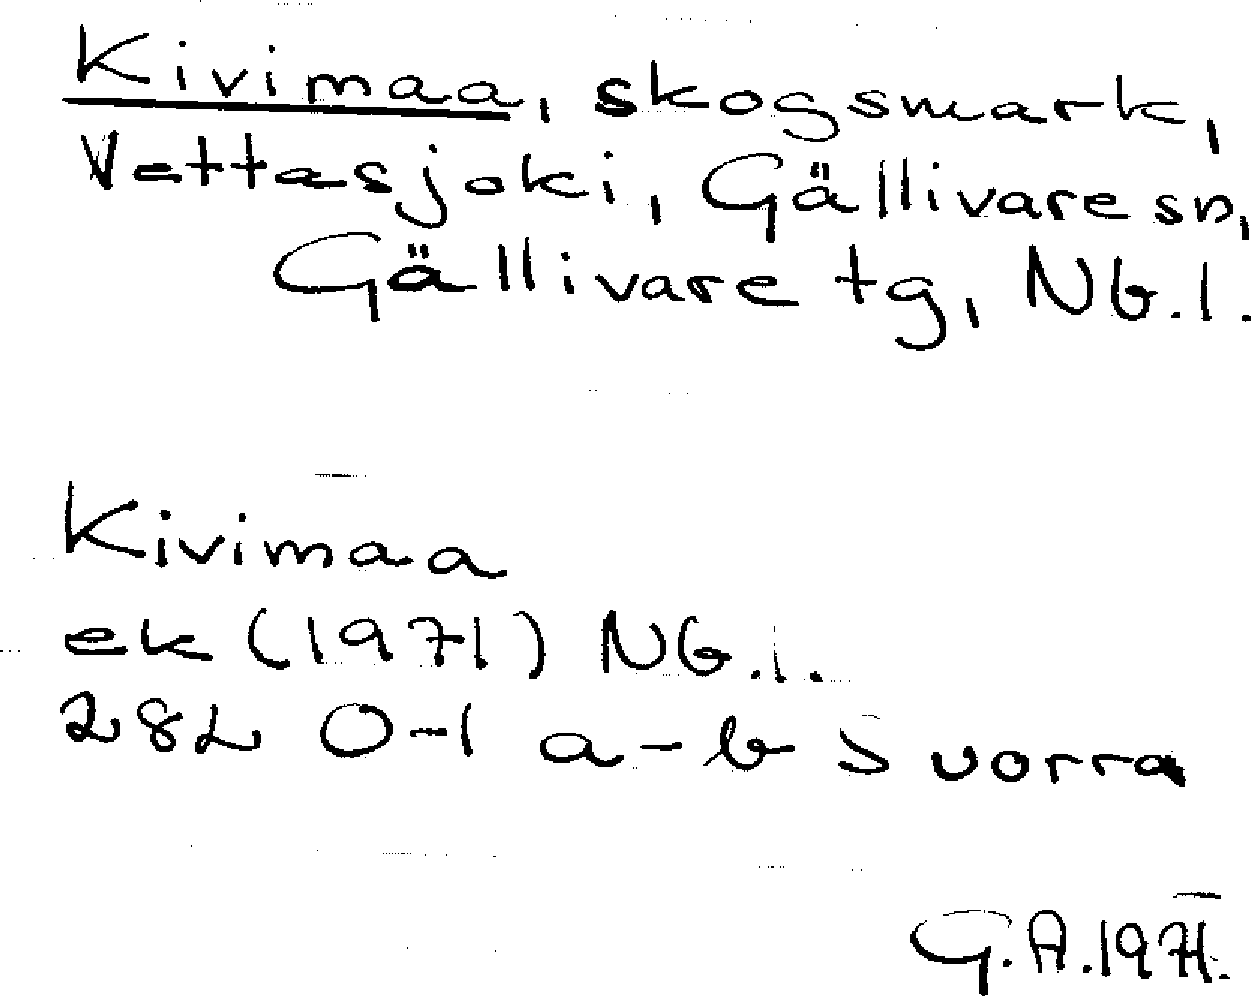 Kivimaa, skogsmark,
Vettasjoki, Gällivare sn,
Gällivare tg, Nb.l.
Kivimaa
ek (1971) NG.l.
28L 0-1 a-b Suorra
G.A.1971.